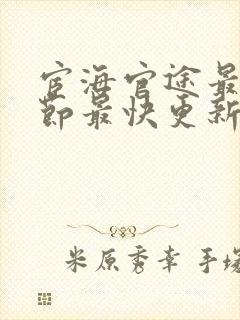 宦海官途最
节最快更新
米原秀幸 手塚